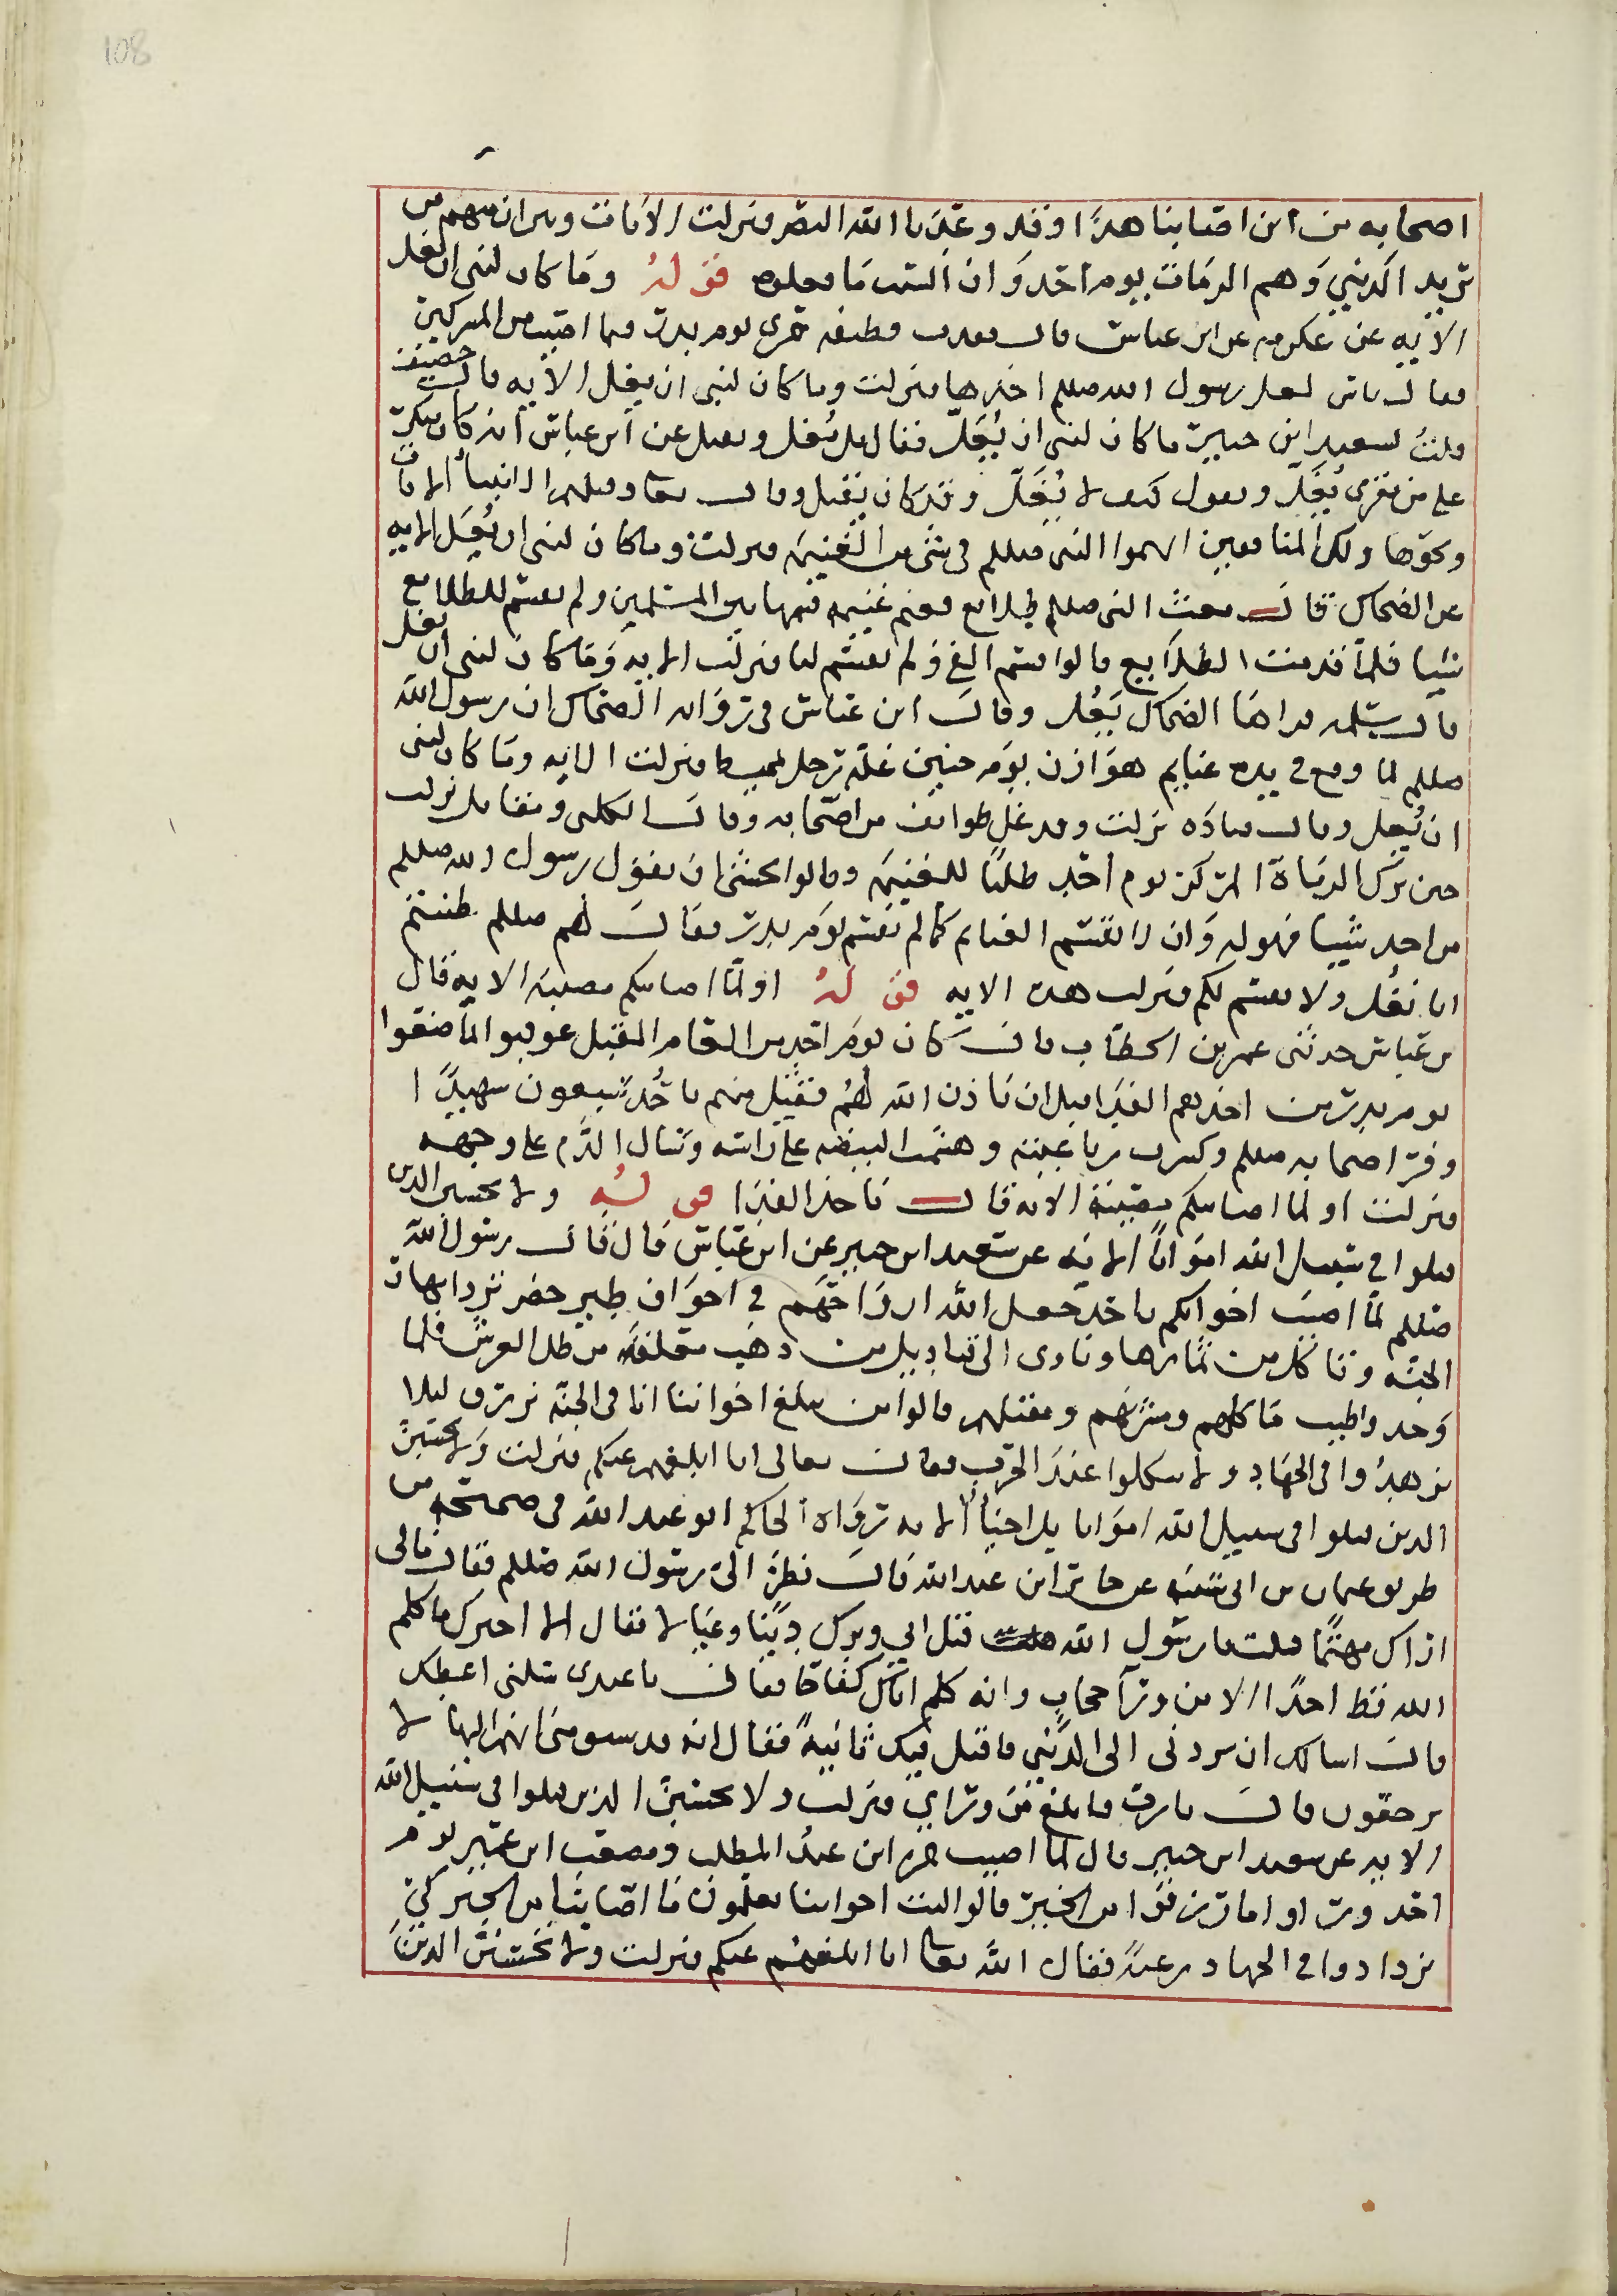 108
اصحابه من اين اصابنا هذا وقد وعدنا الله النصر فنزلت الايات ومن ان منهم من
يريد الدنيي وهم الرماة يوم احد وان الست ما فعلوه قوله وما كان لنبي ان يغل
الايه عن عكرمه عن ابن عباس قال فقدت قطيفه حمرى يوم بدر مما اصيب من المشركين
فقال ناس لعل رسول الله صللم اخذها فنزلت وما كان لنبي ان يغل الايه قال خصيف
قلت لسعيد ابن جبير ما كان لنبي ان يُغَلّ فقال بل يُغل ويقبل عن ابن عباس انه كان ينكر
على من يقرى يُغَلّ ويقول كيف لا يُغَلّ وقد كان يقتل وقال تعا وقتلهم الانبيأ الايات
ونحوها ولكن المنافقين اتهموا النبي صللم في شي من الغنيمه فنزلت وما كان لنبي ان يُغَل الايه
عن الضحاك قال بعث النبي صللم طلايع فغنم غنيمه قسمها بين المسلمين ولم يقسم للطلايع
شيا فلما قدمت الطلايع قالوا قسم الفي ولم يقسم لنا فنزلت الايه وما كان لنبي ان يغل
قال سلمه قراها الضحاك يُغل وقال ابن عباس في روايه الضحاك ان رسول الله
صللم لما وقع في يده غنايم هوازن يوم حنين غله رجل بمخيط فنزلت الايه وما كان لنبي
ان يُغل وقال قتاده نزلت وقد غل طوايف من اصحابه وقال الكلبي ومقاتل نزلت
حين ترك الرماة المركز يوم احد طلبًا للغنيمه وقالوا نخشى ان يقول رسول الله صللم
من اخذ شيا فهو له وان لا يقسم الغنايم كما لم يقسم يوم بدر فقال لهم صللم ظننتم
انا نُغل ولا نقسم لكم فنزلت هذه الايه قوله اولما اصابتكم مصيبه الايه قال
بن عباس حدثني عمر بن الخطاب قال كان يوم احد من العام المقبل عوقبوا لما صنعوا
يوم بدر من اخذهم الفدا قبل ان ياذن الله لهم فقتل منهم باحد سبعون شهيدًا
وفر اصحابه صللم وكسرت رباعيته وهشمت البيضه على راسه وسال الدم على وجهه
فنزلت اولما اصابتكم مصيبة الايه قال ياخذ الفدا قوله ولا تحسبن الذين
قتلوا في سبيل الله امواتًا الايه عن سعيد ابن جبير عن ابن عباس قال قال رسول الله
صللم لما اصيب اخوانكم باحد جعل الله ارواحهم في اجواف طير خضر ترد انهار
الجنه وتاكل من ثمارها وتاوى الى قناديل من ذهب معلقه من ظل العرش فلما
وجدوا طيب ماكلهم ومشربهم ومقيلهم قالوا من يبلغ اخواننا انا في الجنه نرزق ليلا
يزهدوا في الجهاد ولا ينكلوا عند الحرب فقال تعالى انا ابلغهم عنكم فنزلت ولا تحسبن
الذين قتلوا في سبيل الله امواتا بل احيأ الايه رواه الحاكم ابو عبد الله في صحيحه من
طريق عثمان بن ابي شيبه عن جابر ابن عبد الله قال نظر الى رسول الله صللم فقال مالي
اراك مهتمًا قلت يا رسول الله قتل ابي وترك دينا وعيالا فقال الا اخبرك ما كلم
الله قط احدًا الا من ورآ حجاب وانه كلم اباك كفاحًا فقال يا عبدى سلني اعطك
قال اسالك ان تردني الى الدنيي فاقتل فيك ثانيةً فقال انه قد سبق مني انهم اليها لا
يرجعون قال يا رب فابلغ من ورائي فنزلت ولا تحسبن الذين قتلوا في سبيل الله
الايه عن سعيد ابن جبير قال لما اصيب حمزه ابن عبد المطلب ومصعب ابن عمير يوم
احد وراوا ما رزقوا من الخير قالوا ليت اخواننا يعلمون ما اصابنا من الخير كي
يزدادوا في الجهاد رغبةً فقال الله تعا انا ابلغهم عنكم فنزلت ولا تحسبن الذين